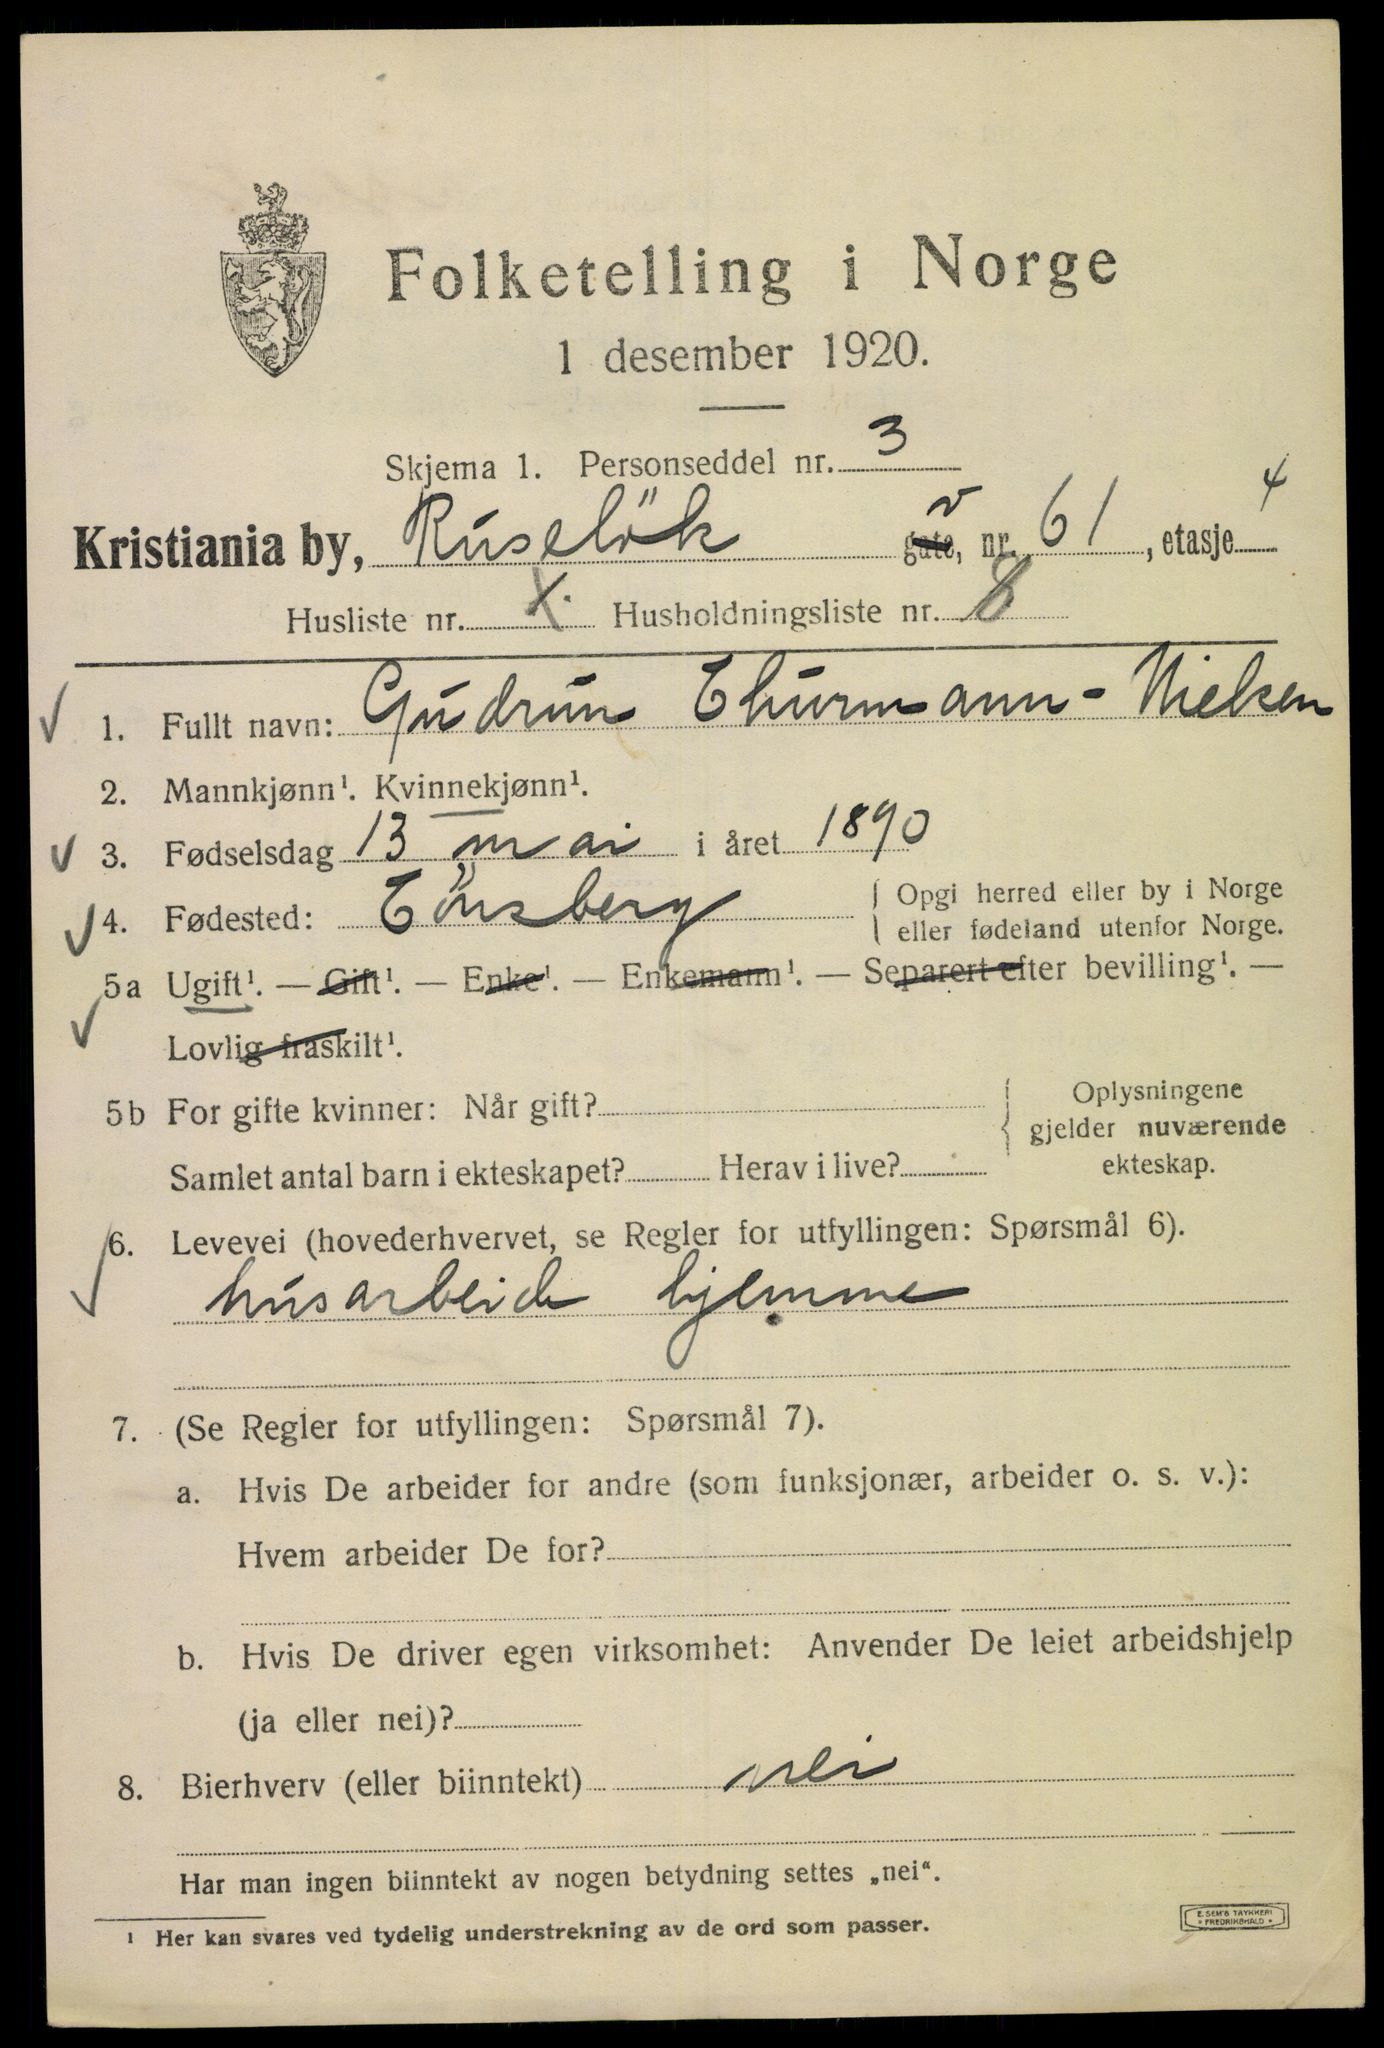 Folketelling i Norge
1 desember 1920.
Skjema 1. Personseddel nr. 3
Kristiania by, Ruselök gate, v nr. 61, etasje 4
Husliste nr. X. Husholdningsliste nr. 8
1. Fullt navn: Gudrun Thurmann-Nielsen
2. Mannkjønn¹. Kvinnekjønn¹.
3. Fødselsdag 13 mai i året 1890
4. Fødested: Tönsberg { Opgi herred eller by i Norge
eller fødeland utenfor Norge.
5a Ugift¹. — Gift¹. — Enke¹. — Enkemann¹. — Separert efter bevilling¹. —
Lovlig fraskilt¹.
5b For gifte kvinner: Når gift? { Oplysningene
gjelder nuværende
Samlet antal barn i ekteskapet? Herav i live? ekteskap.
6. Levevei (hovederhvervet, se Regler for utfyllingen: Spørsmål 6).
husarbeide hjemme
7. (Se Regler for utfyllingen: Spørsmål 7).
a. Hvis De arbeider for andre (som funksjonær, arbeider o. s. v.):
Hvem arbeider De for?
b. Hvis De driver egen virksomhet: Anvender De leiet arbeidshjelp
(ja eller nei)?
8. Bierhverv (eller biinntekt) nei
Har man ingen biinntekt av nogen betydning settes „nei“.
¹ Her kan svares ved tydelig understrekning av de ord som passer.
E. SEM'S TRYKKERI
* FREDRIKSHALD *